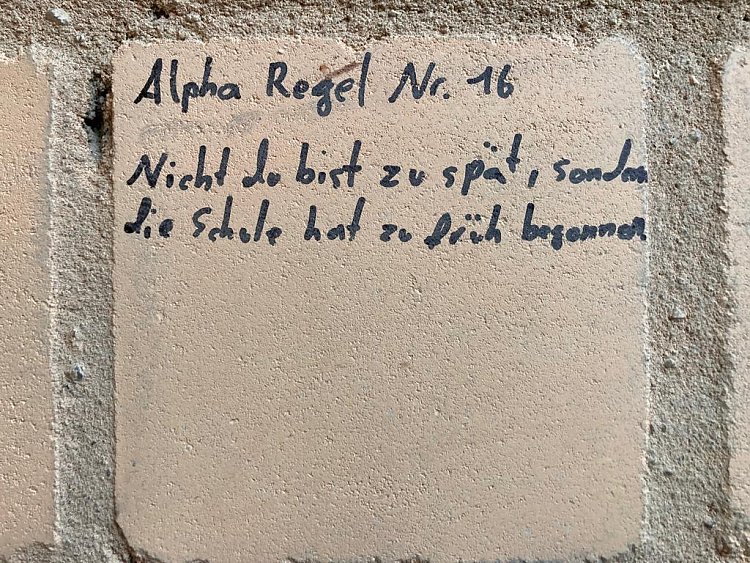 Alpha Regel Nr. 16
Nicht du bist zu spät, sondern
die Schule hat zu früh begonnen